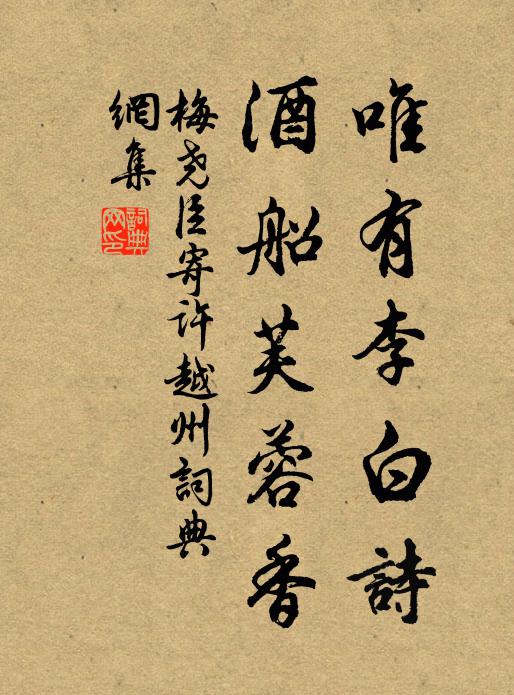 唯有李白詩
酒船芙蓉香
梅尧臣寄许越州詞典
網集
詞典
网印